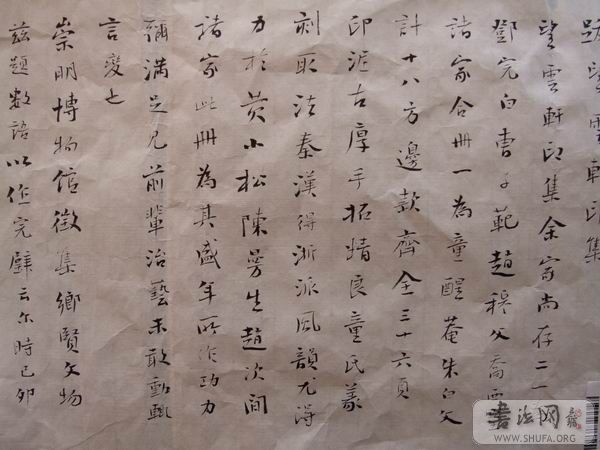 跋望雲軒印集
望雲軒印集余齋尚存二一
鄧完白曹子範趙穆父喬
諸家合冊一為童醒菴朱白父
計十八方邊款齊全三十六頁
印泥古厚手拓精良童氏篆
刻取法秦漢得浙派風韻尤得
力於黄小松陳曼生趙次閒
諸家此冊為其盛年所作功力
彌滿足見前輩治藝未敢動輒
言變也
崇明博物館徵集鄉賢文物
茲題數語以作完璧云尔時己卯
書法网
WWW.SHUFA.ORG